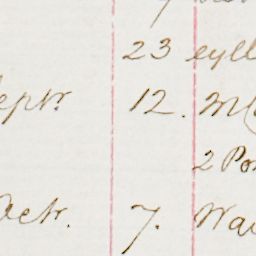 23 eyll
Sept. 12. M
2 Po
Octr. 7. Wa